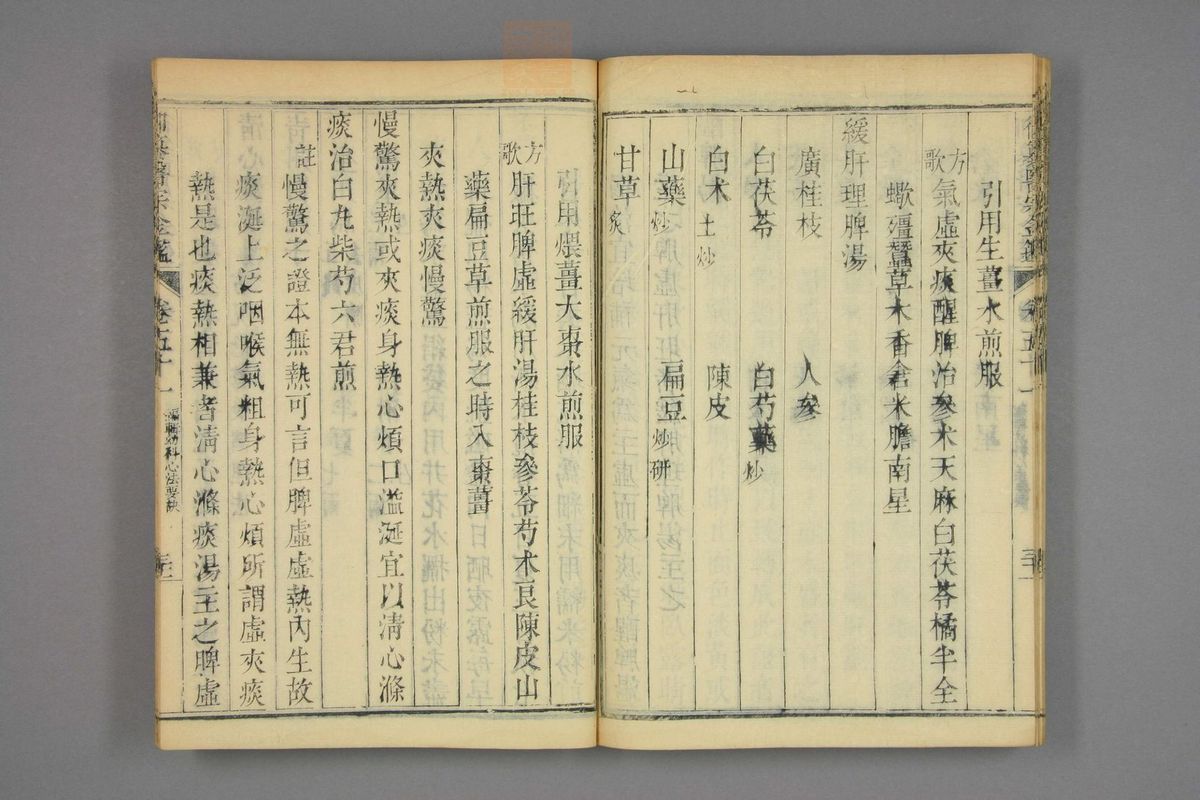 引用生薑水煎服
方歌 氣虛夾痰醒脾治參术天麻白茯苓橘半全
蠍殭蠶草木香倉米膽南星
緩肝理脾湯
廣桂枝 人參
白茯苓 白芍藥炒
白术土炒 陳皮
山藥炒 扁豆炒研
甘草炙
引用煨薑大棗水煎服
方歌 肝旺脾虛緩肝湯桂枝參苓芍术良陳皮山
藥扁豆草煎服之時入棗薑
夾熱夾痰慢驚
慢驚夾熱或夾痰身熱心煩口溢涎宜以清心滌
痰治白丸柴芍六君煎
註 慢驚之證本無熱可言但脾虛虛熱內生故
痰涎上泛咽喉氣粗身熱心煩所謂虛夾痰
熱是也痰熱相兼者清心滌痰湯主之脾虛
御纂醫宗金鑑 卷五十一 編輯幼科心法要訣